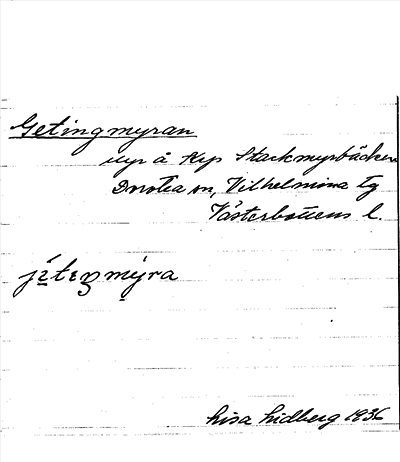 Getingmyran
Myr å Kp Stackmyrbäcken
Dorotea sn, Vilhelmina tg
Västerbottens l.
jèteŋmýra
Lisa Lidberg 1936